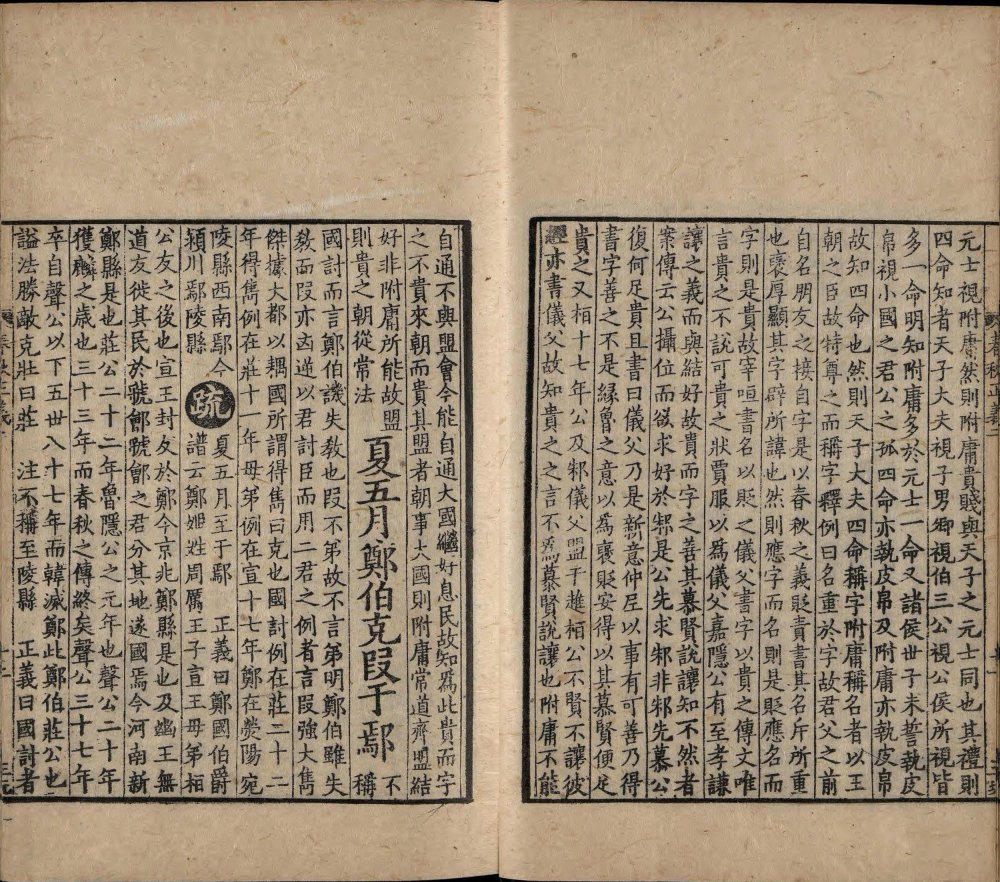 元士視附庸然則附庸貴賤與天子之元士同也其禮則
四命知者天子大夫視子男卿視伯三公視公侯所視皆
多一命明知附庸多於元士一命又諸侯世子未誓執皮
帛視小國之君公之孤四命亦執皮帛及附庸亦執皮帛
故知四命也然則天子大夫四命稱字附庸稱名者以王
朝之臣故特尊之而稱字釋例曰名重於字故君父之前
自名朋友之接自字是以春秋之義貶責書其名斥所重
也褒厚顯其字辟所諱也然則應字而名則是貶應名而
字則是貴故宰咺書名以貶之儀父書字以貴之傳文唯
言貴之不說可貴之狀賈服以爲儀父嘉隱公有至孝謙
讓之義而與結好故貴而字之善其慕賢說讓知不然者
案傳云公攝位而欲求好於邾是公先求邾非邾先慕公
復何足貴且書曰儀父乃是新意仲尼以事有可善乃得
書字善之不是緣魯之意以爲襃貶安得以其慕賢便足
貴之又桓十七年公及邾儀父盟于趡桓公不賢不讓彼
經亦書儀父故知貴之之言不爲慕賢說讓也附庸不能
自通不與盟會今能自通大國繼好息民故知爲此貴而字
之不貴來朝而貴其盟者朝事大國則附庸常道齊盟結
好非附庸所能故盟
則貴之朝從常法
夏五月鄭伯克段于鄢
不稱
國討而言鄭伯譏失敎也段不弟故不言弟明鄭伯雖失
敎而段亦凶逆以君討臣而用二君之例者言段強大雋
傑據大都以耦國所謂得雋曰克也國討例在莊二十二
年得雋例在莊十一年母弟例在宣十七年鄭在滎陽宛
陵縣西南鄢今
潁川鄢陵縣
疏
夏五月至于鄢　正義曰鄭國伯爵
譜云鄭姬姓周厲王子宣王母弟桓
公友之後也宣王封友於鄭今京兆鄭縣是也及幽王無
道友徙其民於虢鄶虢鄶之君分其地遂國焉今河南新
鄭縣是也莊公二十二年魯隱公之元年也聲公二十年
獲麟之歲也三十三年而春秋之傳終矣聲公三十七年
卒自聲公以下五世八十七年而韓滅鄭此鄭伯莊公也
謚法勝敵克壯曰莊　注不稱至陵縣　正義曰國討者